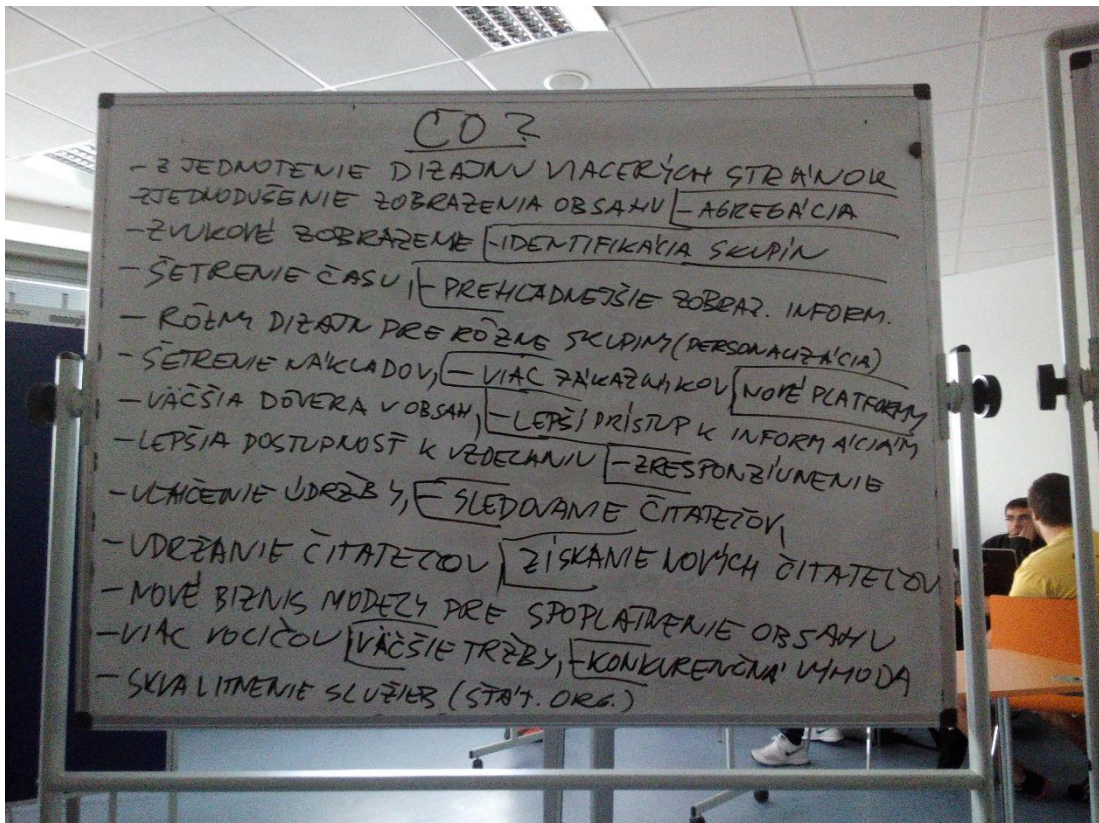 ČO?
- ZJEDNOTENIE DIZAJNU VIACERÝCH STRÁNOK
- ZJEDNODUŠENIE ZOBRAZENIA OBSAHU - AGREGÁCIA
- ZVUKOVÉ ZOBRAZENIE - IDENTIFIKÁCIA SKUPÍN
- ŠETRENIE ČASU, - PREHĽADNEJŠIE ZOBRAZ. INFORM.
- RÔZNY DIZAJN PRE RÔZNE SKUPINY (PERSONALIZÁCIA)
- ŠETRENIE NÁKLADOV, - VIAC ZÁKAZNÍKOV NOVÉ PLATFORMY
- VÄČŠIA DÔVERA V OBSAH, - LEPŠÍ PRÍSTUP K INFORMÁCIÁM
- LEPŠIA DOSTUPNOSŤ K VZDELANIU - ZRESPONZÍVNENIE
- UĽAHČENIE ÚDRŽBY, - SLEDOVANIE ČITATEĽOV,
- UDRŽANIE ČITATEĽOV, ZÍSKANIE NOVÝCH ČITATEĽOV
- NOVÉ BIZNIS MODELY PRE SPOPLATNENIE OBSAHU
- VIAC VOLIČOV VÄČŠIE TRŽBY, - KONKURENČNÁ VÝHODA
- SKVALITNENIE SLUŽIEB (ŠTÁT. ORG.)